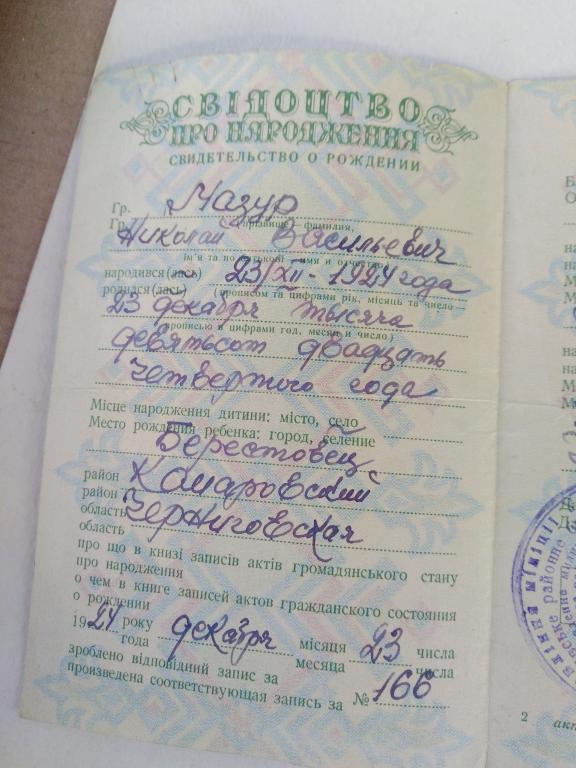 СВІДОЦТВО
ПРО НАРОДЖЕННЯ
СВИДЕТЕЛЬСТВО О РОЖДЕНИИ
Гр. Мазур
Гр. прізвище, фамилия,
Николай Васильевич
ім'я та по батькові имя и отчество
народився (лась) 23/XII - 1924 года
родился (лась) (прописом та цифрами рік, місяць та число
23 декабря тысяча
прописью и цифрами год, месяц и число)
девятьсот двадцать
четвертого года
Місце народження дитини: місто, село
Место рождения ребенка: город, селение
Берестовец
район Комаровский
район
область Черниговская
область
про що в книзі записів актів громадянського стану
про народження
о чем в книге записей актов гражданского состояния
о рождении
1924 року декабря місяця 23 числа
года месяца числа
зроблено відповідний запис за
произведена соответствующая запись за № 166
2